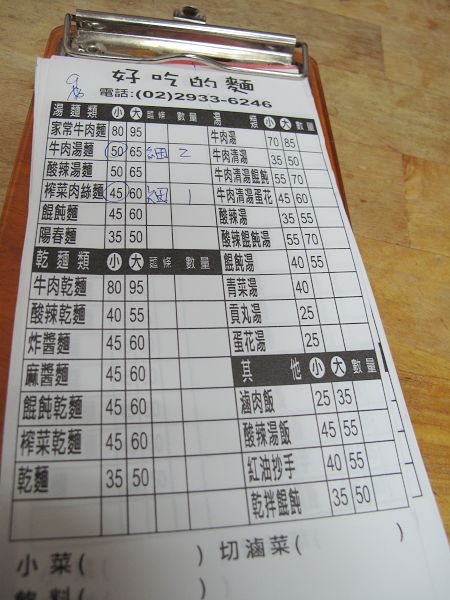 好吃的麵
電話:(02)2933-6246
湯麵類 小 大 麵條 數量
家常牛肉麵 80 95
牛肉湯麵 50 65 細 2
酸辣湯麵 50 65
榨菜肉絲麵 45 60 細 1
餛飩麵 45 60
陽春麵 35 50
乾麵類 小 大 麵條 數量
牛肉乾麵 80 95
酸辣乾麵 40 55
炸醬麵 45 60
麻醬麵 45 60
餛飩乾麵 45 60
榨菜乾麵 45 60
乾麵 35 50
湯類 小 大 數量
牛肉湯 70 85
牛肉清湯 35 50
牛肉清湯餛飩 55 70
牛肉清湯蛋花 45 60
酸辣湯 35 55
酸辣餛飩湯 55 70
餛飩湯 40 55
青菜湯 40
貢丸湯 25
蛋花湯 25
其他 小 大 數量
滷肉飯 25 35
酸辣湯飯 45 55
紅油抄手 40 55
乾拌餛飩 35 50
小菜( ) 切滷菜(
飲料( )